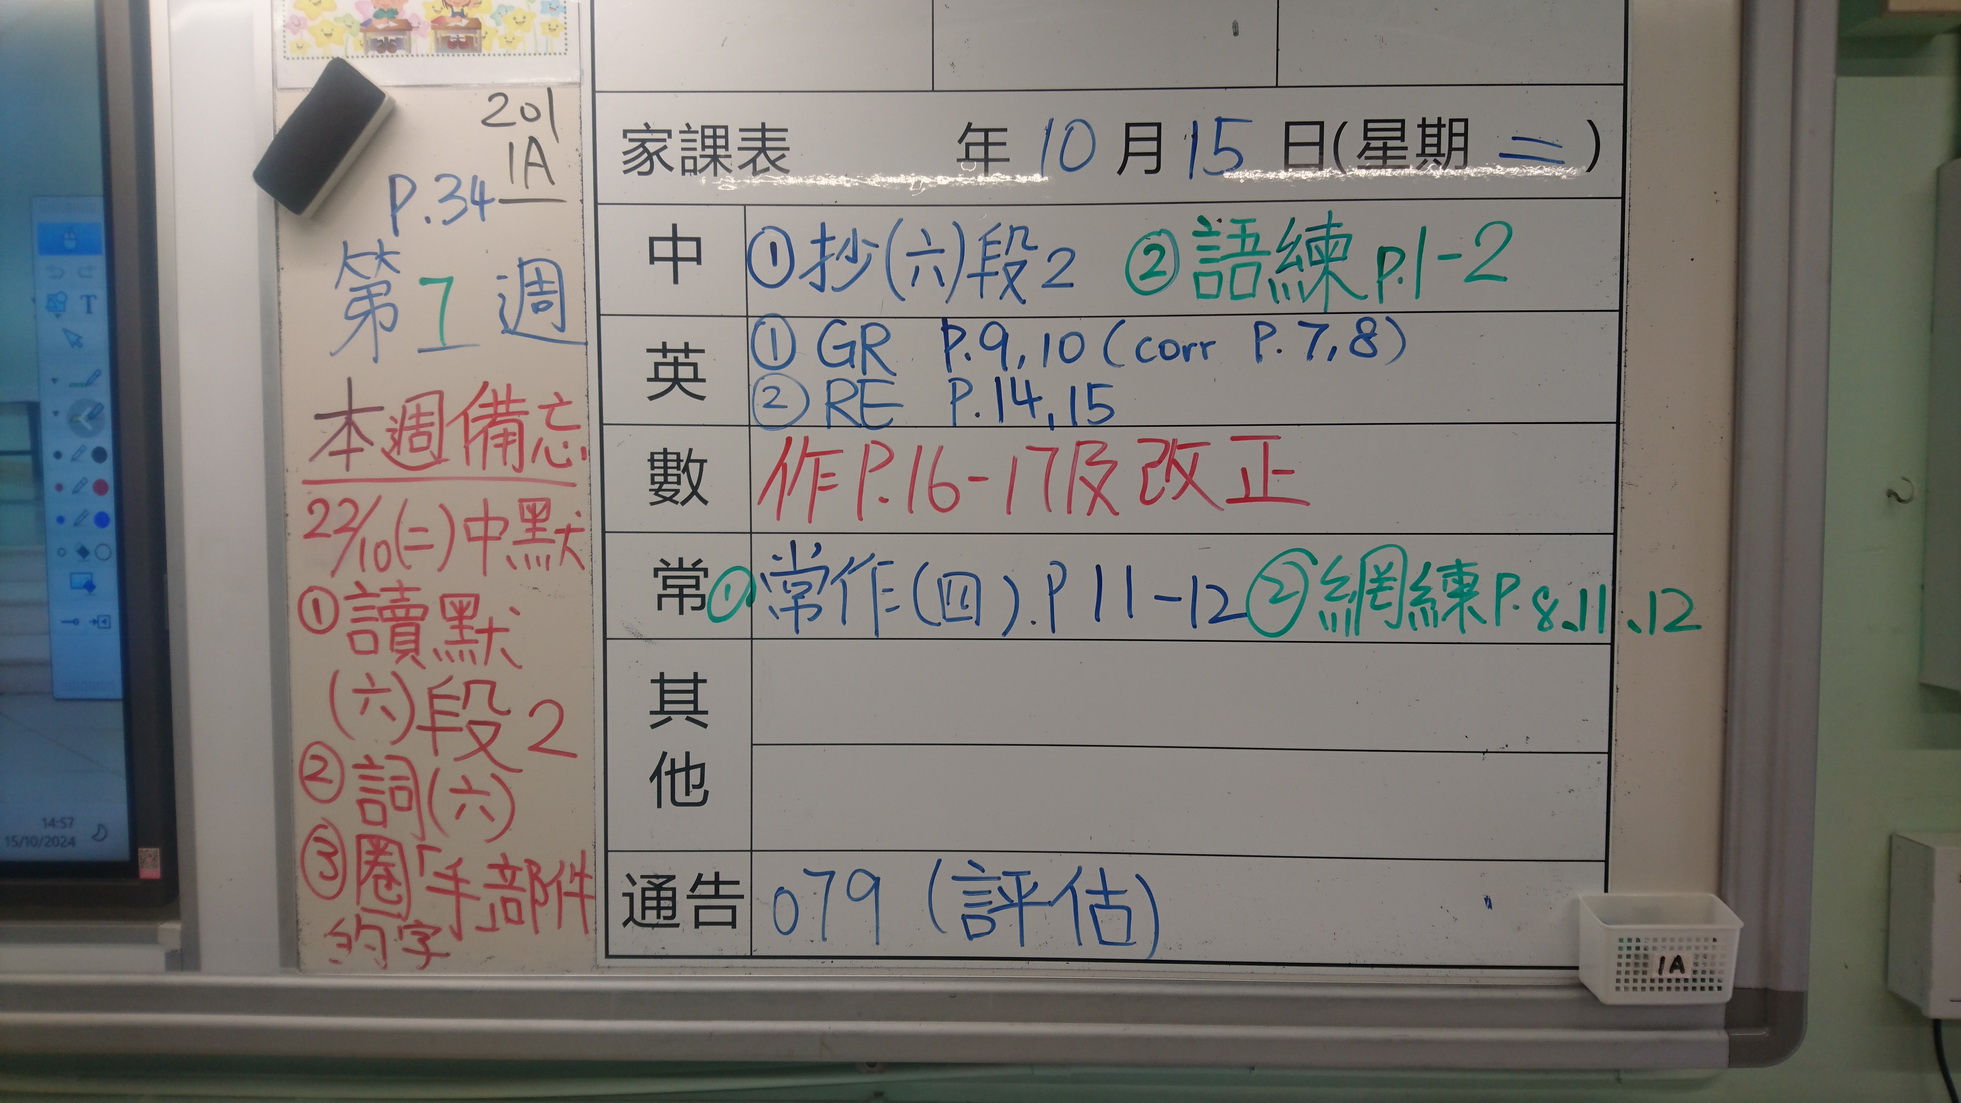 201
1A
P.34
第7週
本週備忘
22/10(二)中默
①讀默
(六)段2
②詞(六)
③圈「手」部件
的字
家課表 年10月15日(星期二)
中 ①抄(六)段2 ②語練p.1-2
英 ① GR P.9,10 (corr P.7,8)
② RE P.14,15
數 作P.16-17及改正
常 ①常作(四).P11-12 ②網練P.8、11、12
其他
通告 079 (評估)
1A
T
14:57
15/10/2024